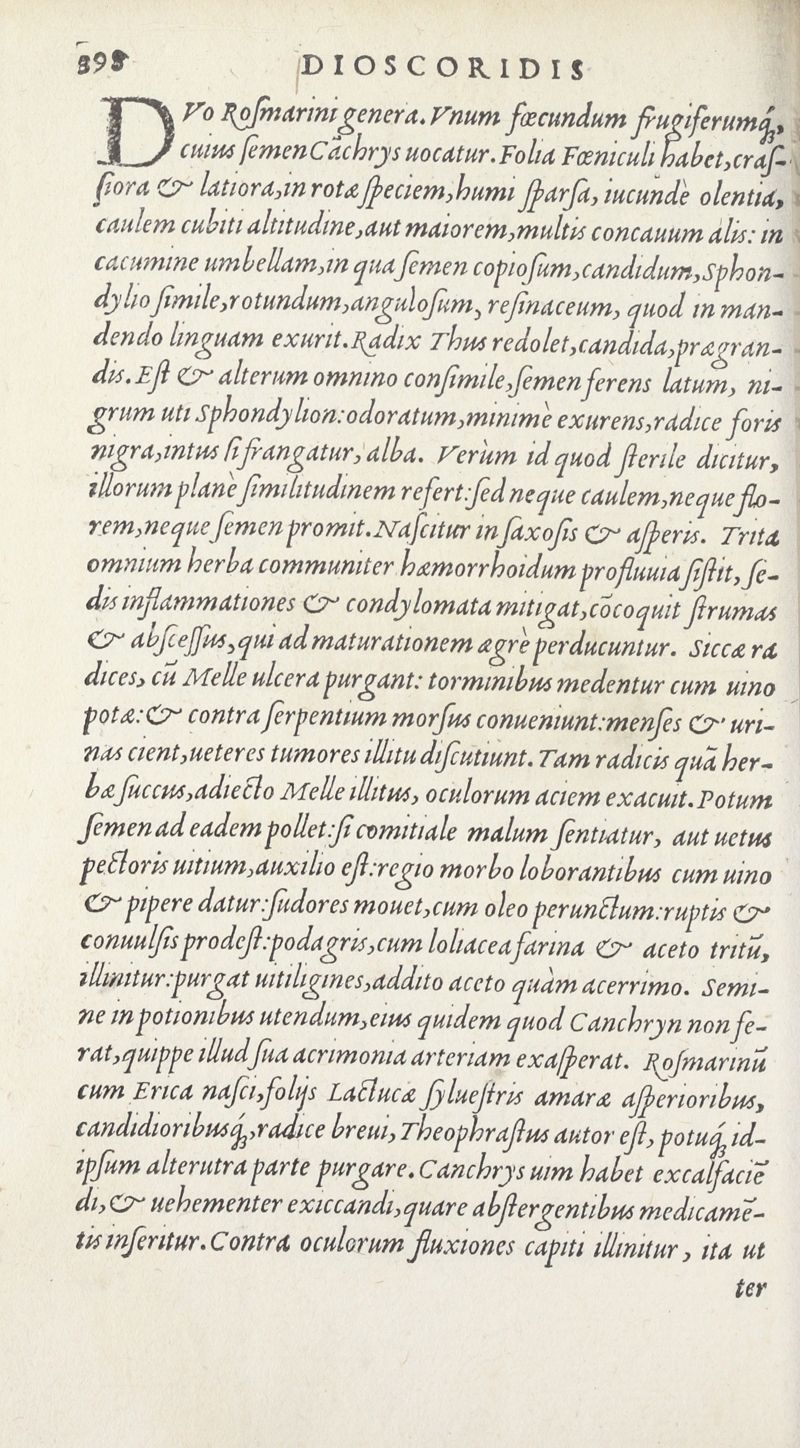 398 DIOSCORIDIS
DVo Roſmarini genera. Vnum fœcundum frugiferumq́;,
cuius ſemen Cachrys uocatur. Folia Fœniculi habet, craſ-
ſiora & latiora, in rotæ ſpeciem, humi ſparſa, iucundè olentia,
caulem cubiti altitudine, aut maiorem, multis concauum alis: in
cacumine umbellam, in qua ſemen copioſum, candidum, Sphon-
dylio ſimile, rotundum, anguloſum, reſinaceum, quod in man-
dendo linguam exurit. Radix Thus redolet, candida, prægran-
dis. Eſt & alterum omnino conſimile, ſemen ferens latum, ni-
grum uti Sphondylion: odoratum, minimè exurens, radice foris
nigra, intus ſi frangatur, alba. Verùm id quod ſterile dicitur,
illorum planè ſimilitudinem refert: ſed neque caulem, neque flo-
rem, neque ſemen promit. Naſcitur in ſaxoſis & aſperis. Trita
omnium herba communiter hæmorrhoidum profluuia ſiſtit, ſe-
dis inflammationes & condylomata mitigat, cõcoquit ſtrumas
& abſceſſus, qui ad maturationem ægrè perducuntur. Siccæ ra
dices, cũ Melle ulcera purgant: torminibus medentur cum uino
potæ: & contra ſerpentium morſus conueniunt: menſes & uri-
nas cient, ueteres tumores illitu diſcutiunt. Tam radicis quã her-
bæ ſuccus, adiecto Melle illitus, oculorum aciem exacuit. Potum
ſemen ad eadem pollet: ſi comitiale malum ſentiatur, aut uetus
pectoris uitium, auxilio eſt: regio morbo loborantibus cum uino
& pipere datur: ſudores mouet, cum oleo perunctum: ruptis &
conuulſis prodeſt: podagris, cum loliacea farina & aceto tritũ,
illinitur: purgat uitiligines, addito aceto quàm acerrimo. Semi-
ne in potionibus utendum, eius quidem quod Canchryn non fe-
rat, quippe illud ſua acrimonia arteriam exaſperat. Roſmarinũ
cum Erica naſci, folijs Lactucæ ſylueſtris amaræ aſperioribus,
candidioribusq́;, radice breui, Theophraſtus autor eſt, potuq́; id-
ipſum alterutra parte purgare. Canchrys uim habet excalfaciẽ
di, & uehementer exiccandi, quare abſtergentibus medicamẽ-
tis inſeritur. Contra oculorum fluxiones capiti illinitur, ita ut
ter